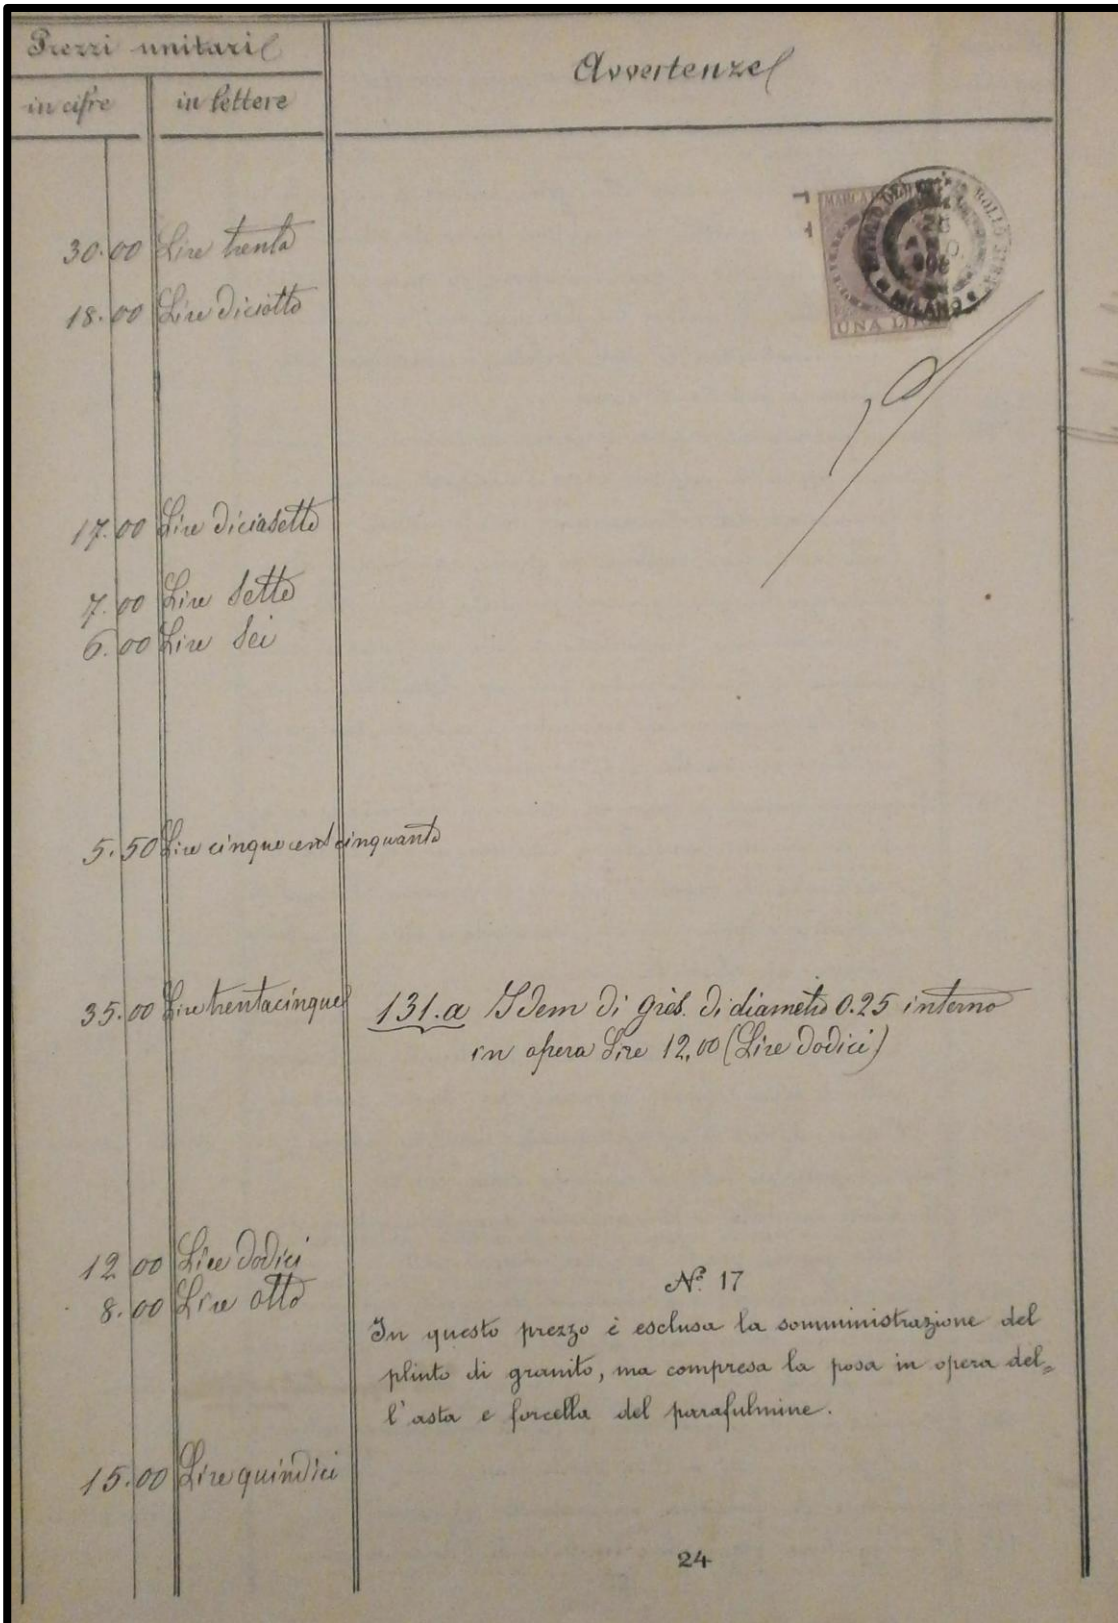 Prezzi unitarii
Avvertenze
in cifre in lettere
MARCA
UNA LIRA
BOLLO
MILANO
30.00 Lire trenta
18.00 Lire diciotto
17.00 Lire diciasette
7.00 Lire Sette
6.00 Lire Sei
5.50 Lire cinque cent cinquanta
35.00 Lire trentacinque 131.a Idem di grès. di diametro 0.25 interno
in opera Lire 12,00 (Lire Dodici)
12.00 Lire Dodici
8.00 Lire otto
N.º 17
In questo prezzo è esclusa la somministrazione del
plinto di granito, ma compresa la posa in opera del=
l'asta e forcella del parafulmine.
15.00 Lire quindici
24